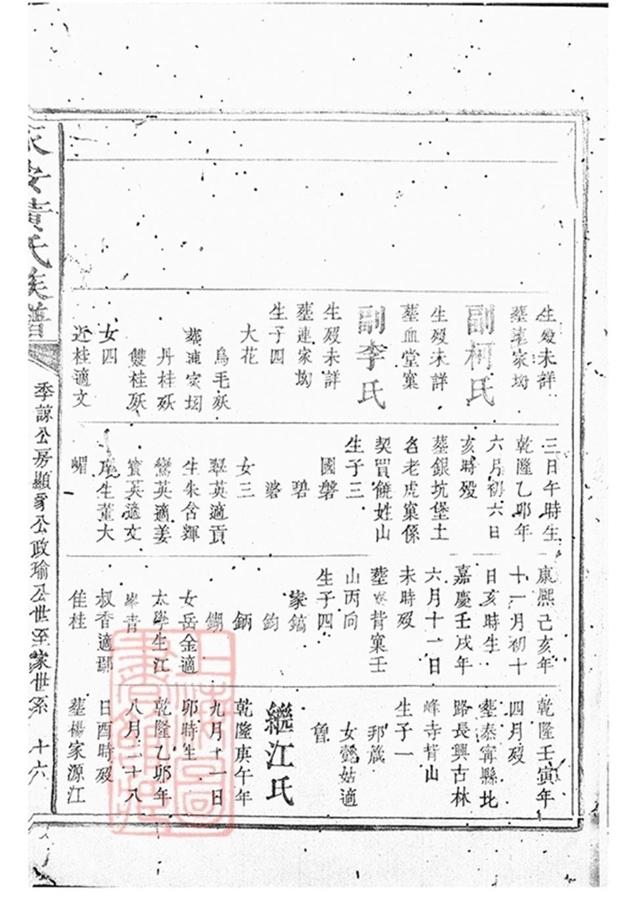 生歿未詳
墓連家坳
副柯氏
生歿未詳
墓血堂窠
副李氏
生歿未詳
墓連家坳
生子四
大花
烏毛殀
墓連家坳
丹桂殀
雙桂殀
女四
近桂適文
三日午時生
乾隆乙卯年
六月初六日
亥時歿
墓銀坑堡土
名老虎窠係
契買饒姓山
生子三
國磐
碧
磻
女三
翠英適貢
生朱含輝
鸞英適姜
寶英適文
庠生董大
帽
康熙己亥年
十一月初十
日亥時生
嘉慶壬戌年
六月十一日
未時歿
墓寮背窠壬
山丙向
生子四
家鎬
鈞
鈵
女岳金適
太學生江
青
叔香適鄢
佳桂
乾隆壬寅年
四月歿
墓泰寧縣北
路長興古林
峰寺背山
生子一
邦箴
女甏姑適
魯
繼江氏
乾隆庚午年
九月十一日
卯時生
乾隆乙卯年
八月二十八
日酉時歿
墓楊家源江
永安黃氏族譜
季諒公房顯豸公政瑜公世至家世系
十六